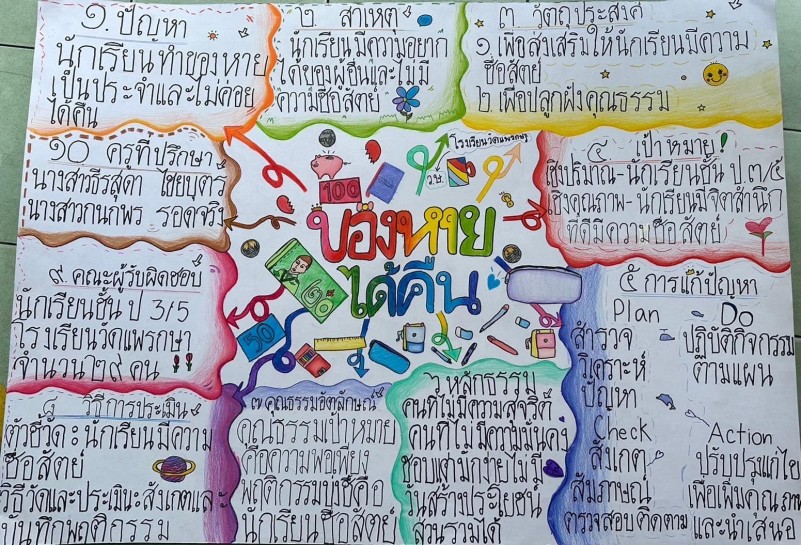 ๑. ปัญหา
นักเรียนทำของหาย
เป็นประจำและไม่ค่อย
ได้คืน
๒ สาเหตุ
นักเรียนมีความอยาก
ได้ของผู้อื่นและไม่มี
ความซื่อสัตย์
๓ วัตถุประสงค์
๑ เพื่อส่งเสริมให้นักเรียนมีความ
ซื่อสัตย์
๒ เพื่อปลูกฝังคุณธรรม
โรงเรียนวัดแพรกษา
๔ เป้าหมาย!
เชิงปริมาณ-นักเรียนชั้น ป.๓/๕
เชิงคุณภาพ-นักเรียนมีจิตสำนึก
ที่ดีมีความซื่อสัตย์
ของหาย
ได้คืน
100
60
50
๕ การแก้ปัญหา
Plan
สำรวจ
วิเคราะห์
ปัญหา
Do
ปฏิบัติกิจกรรม
ตามแผน
Check
สังเกต
สัมภาษณ์
ตรวจสอบ ติดตาม
Action
ปรับปรุงแก้ไข
เพื่อเพิ่มคุณภาพ
และนำเสนอ
๖ หลักธรรม
คนที่ไม่มีความสุจริต
คนที่ไม่มีความมั่นคง
ชอบแต่มักง่ายไม่มี
วันสร้างประโยชน์
ส่วนรวมได้
๗ คุณธรรมอัตลักษณ์
คุณธรรมเป้าหมาย
คือความพอเพียง
พฤติกรรมบ่งชี้คือ
นักเรียนซื่อสัตย์
๘ วิธีการประเมิน
ตัวชี้วัด: นักเรียนมีความ
ซื่อสัตย์
วิธีวัดและประเมิน: สังเกตและ
บันทึกพฤติกรรม
๙ คณะผู้รับผิดชอบ
นักเรียนชั้น ป 3/5
โรงเรียนวัดแพรกษา
จำนวน ๒๙ คน
๑๐ ครูที่ปรึกษา
นางสาวธีรสุดา ไชยบุตร
นางสาวกนกพร รอดจริง